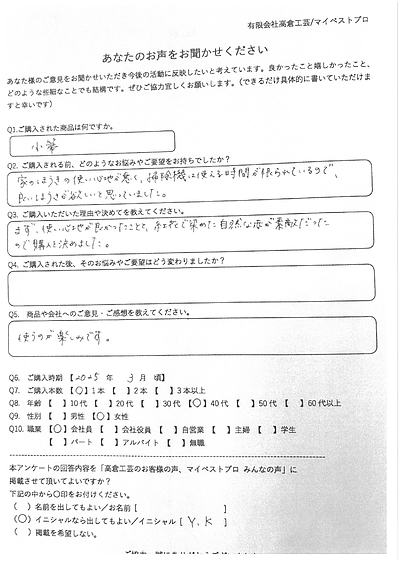 有限会社高倉工芸/マイベストプロ
あなたのお声をお聞かせください
あなた様のご意見をお聞かせいただき今後の活動に反映したいと考えています。良かったこと嬉しかったこと、
どのような些細なことでも結構です。ぜひご協力宜しくお願いします。（できるだけ具体的に書いていただけま
すと幸いです）
Q1.ご購入された商品は何ですか。
小箒
Q2. ご購入される前、どのようなお悩みやご要望をお持ちでしたか？
家のほうきの使い心地が悪く、掃除機は使える時間が限られているので、
良いほうきが欲しいと思っていました。
Q3. ご購入いただいた理由や決めてを教えてください。
まず、使い心地が良かったことと、紅花で染めた自然な感が素敵だった
ので購入を決めました。
Q4. ご購入された後、そのお悩みやご要望はどう変わりましたか？
Q5. 商品や会社へのご意見・ご感想を教えてください。
使うのが楽しみです。
Q6. ご購入時期 【2025年 3月 頃】
Q7. ご購入本数 【〇】1本 【 】2本 【 】3本以上
Q8. 年齢 【 】10代 【 】20代 【 】30代 【〇】40代 【 】50代 【 】60代以上
Q9. 性別 【 】男性 【〇】女性
Q10. 職業 【〇】会社員 【 】会社役員 【 】自営業 【 】主婦 【 】学生
【 】パート 【 】アルバイト 【 】無職
本アンケートの回答内容を「高倉工芸のお客様の声、マイベストプロ みんなの声」に
掲載させて頂いてよいですか？
下記の中から〇印をお付けください。
（ ）名前を出してもよい/お名前【 】
（〇）イニシャルなら出してもよい/イニシャル【 Y.K 】
（ ）掲載を希望しない。